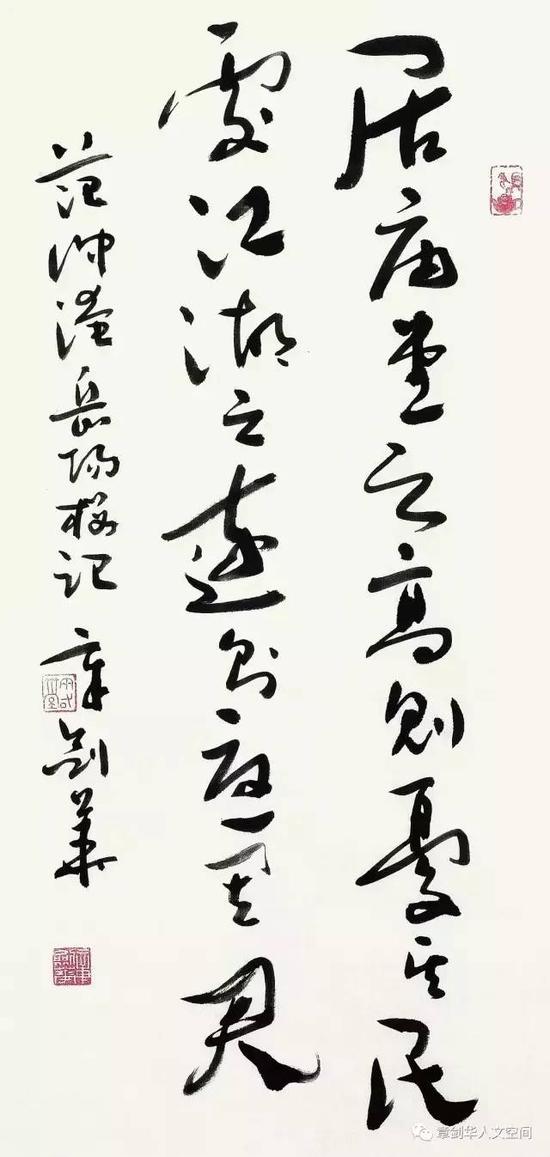 居庙堂之高则忧其民
處江湖之遠则憂其君
范仲淹岳阳楼记 章剑华
章剑华人文空间